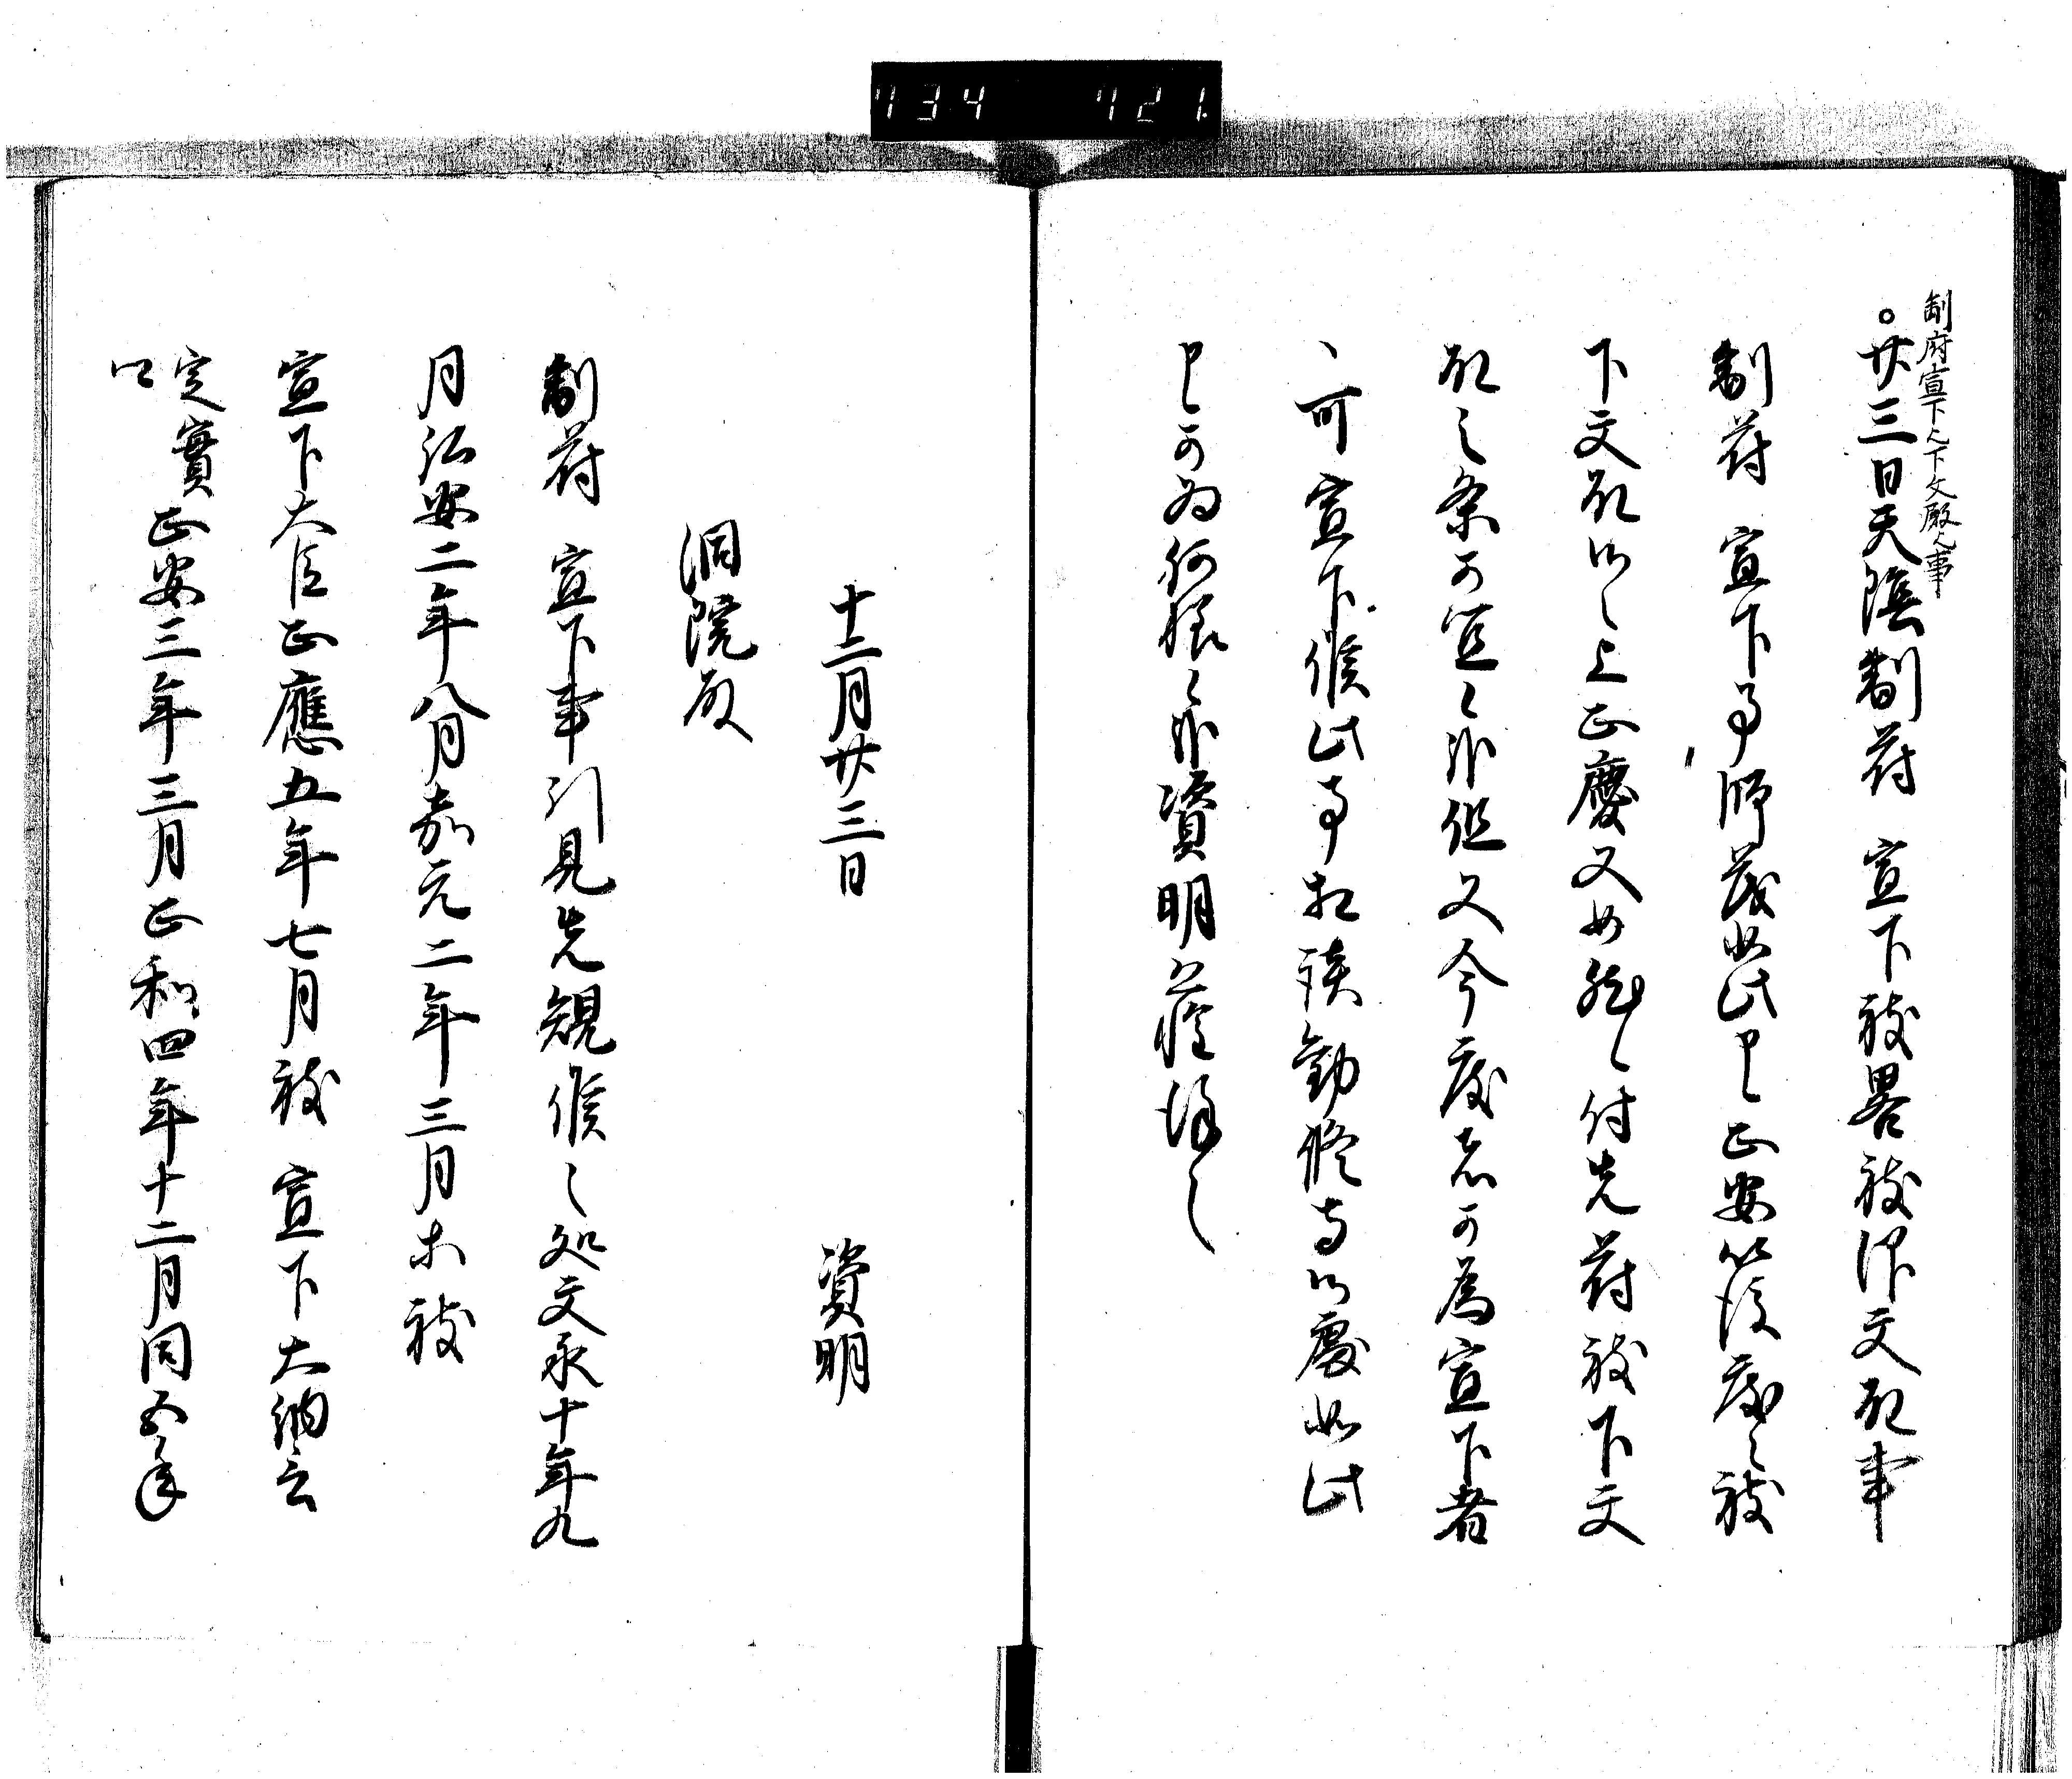 制府宣下之下文殿之事
廿三日天陰制符 宣下被畧被作文殿事
制符 宣下事師茂如此申之正安以後度々被
下文殿以上正慶又如然付先符被下文
殿之条可宜候歟但又今度者可為宣下者
可 宣下候此事相談勧修寺以處如此
申可為何様候歟資明
十二月廿三日 資明
洞院殿
制符 宣下事引見先規候之処文永十年九
月弘安二年八月嘉元二年三月未被
宣下大臣正應五年七月被 宣下大納言
定實正安三年三月正和四年十二月同五年